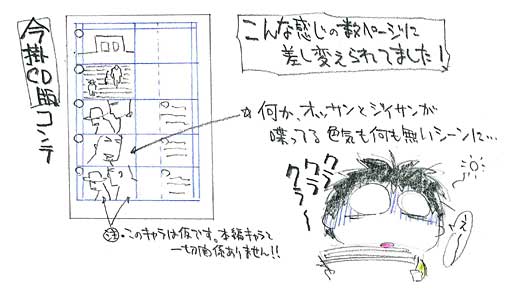 こんな感じの数ページに
差し変えられてました!
今掛CD版コンテ
☆何か、オッサンとジイサンが
喋ってる色気も何も無いシーンに…
クラ
クラ
クラ〜
え〜
注・このキャラは仮です。本編キャラと
一切関係ありません!!